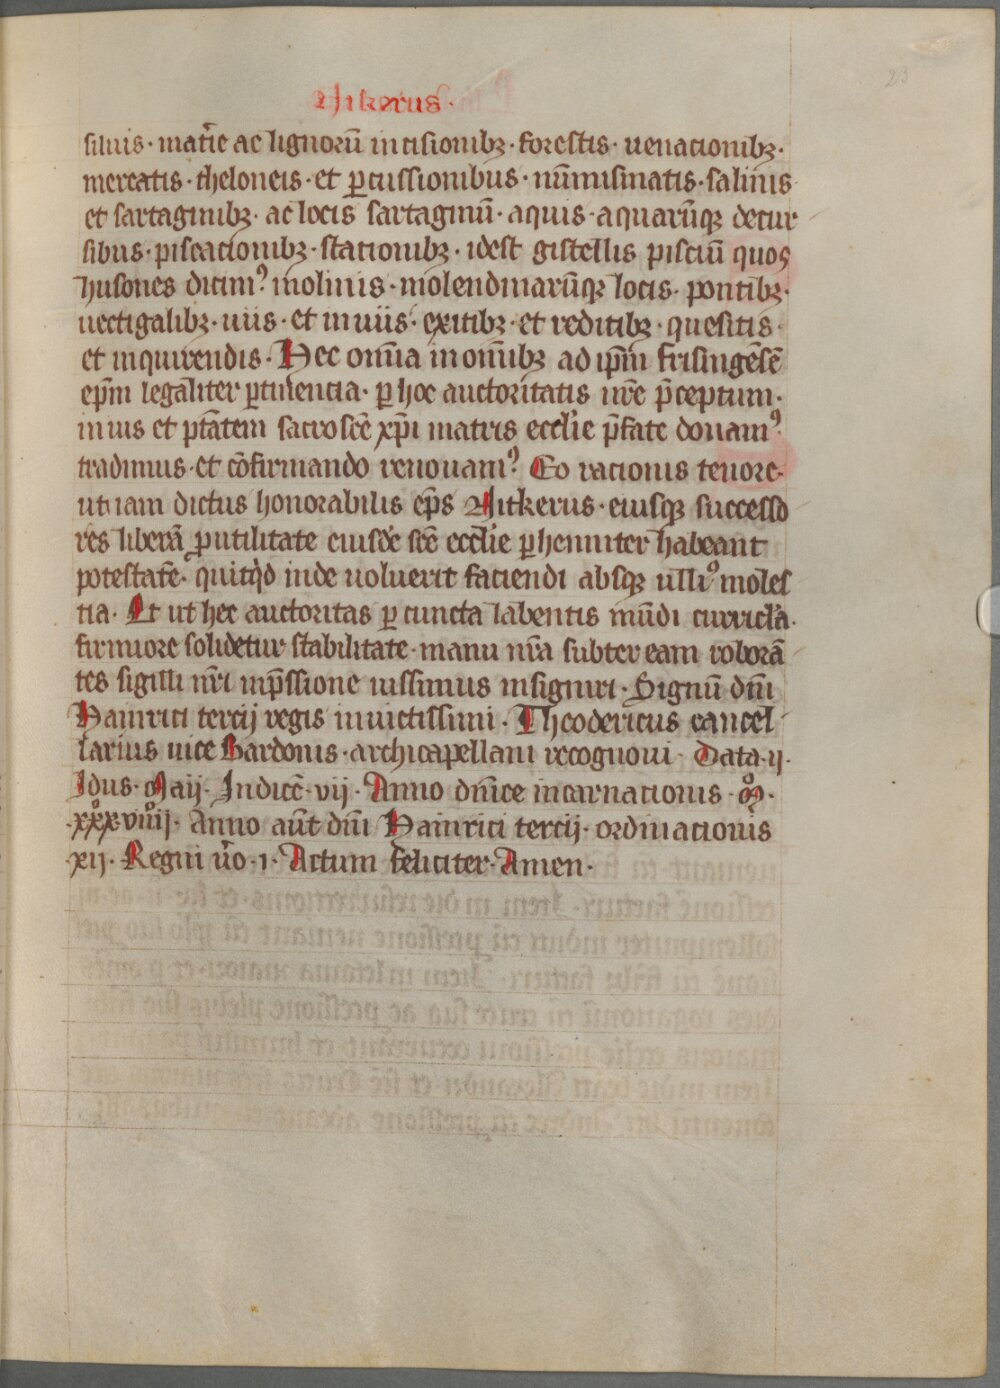 23
Nikerus·
siluis· mat̄ie ac lignorū incisionibꝫ· forestis· uenacionibꝫ·
mercatis· theloneis· et ꝑcussionibus· nūmismatis· salinis·
et sartaginibꝫ· ac locis sartaginū· aquis· aquarūqꝫ decur
sibus· piscacionibꝫ· stacionibꝫ· idest gistellis pisciū quos
husones dicimꝰ molinis· molendinarūqꝫ locis· pontibꝫ·
uectigalibꝫ· uiis· et inuiis· exitibꝫ· et reditibꝫ· quesitis·
et inquirendis· Hec om̄ia in om̄ibꝫ ad ip̄m frisingēsē
ep̄m legaliter ꝑtinencia· ꝑ hoc auctoritatis nr̄e p̄ceptum·
in ius et ptāt̄em sacrosc̄e xp̄i matris eccl̄ie p̄fate donamꝰ·
tradimus· et cōfirmando renouamꝰ· Eo racionis tenore·
ut iam dictus honorabilis ep̄s Nitkerus· eiusqꝫ successo
res liberā pro utilitate eiusdē sc̄e eccl̄ie ꝑhenniter habeant
potestatē· quitqͥd inde uoluerit faciendi absqꝫ ulliꝰ moles
tia· Et ut hec auctoritas ꝑ cuncta labentis mūdi curricl̄a·
firmiore solidetur stabilitate· manu nr̄a subter eam roborā
tes sigilli nr̄i inp̄ssione iussimus insigniri· Signū dn̄i
Hainrici tercij regis inuictissimi· Theodericus cancel
larius uice Bardonis· archicapellani recognoui· Data· ij·
Idus· Maij· Indicc̄· vij· Anno dn̄ice incarnacionis· M̊·
·xxx̊·viiij̊· Anno aūt dn̄i Hainrici tercij· ordinacionis
·xij· Regni u̅o· i· Actum feliciter· Amen·